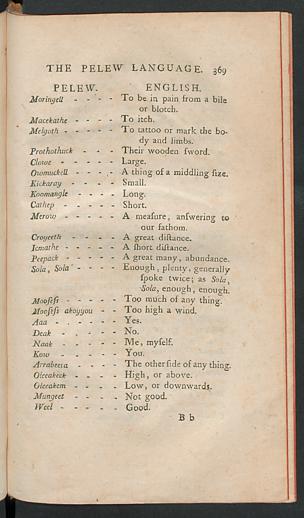 THE PELEW LANGUAGE. 369
PELEW. ENGLISH.
Moringell - - - - To be in pain from a bile
or blotch.
Macekathe - - - - To itch.
Melgoth - - - - - To tattoo or mark the bo-
dy and limbs.
Prothothuck - - - Their wooden ſword.
Clowe - - - - - Large.
Owmuckell - - - - A thing of a middling ſize.
Kickaray - - - - Small.
Koomangle - - - - Long.
Cathep - - - - - Short.
Merow - - - - - A meaſure, anſwering to
our fathom.
Croyeeth - - - - - A great diſtance.
Icmathe - - - - - A ſhort diſtance.
Peepack - - - - - A great many, abundance.
Sola, Sola - - - - Enough, plenty, generally
ſpoke twice; as Sola,
Sola, enough, enough.
Mooſeſi - - - - - Too much of any thing.
Mooſeſi akoyyou - - Too high a wind.
Aaa - - - - - Yes.
Deak - - - - - No.
Naak - - - - - Me, myſelf.
Kow - - - - - You.
Arrabeeta - - - - The other ſide of any thing.
Oleeakeek - - - - High, or above.
Oleeakem - - - - Low, or downwards.
Mungeet - - - - Not good.
Weel - - - - - Good.
B b